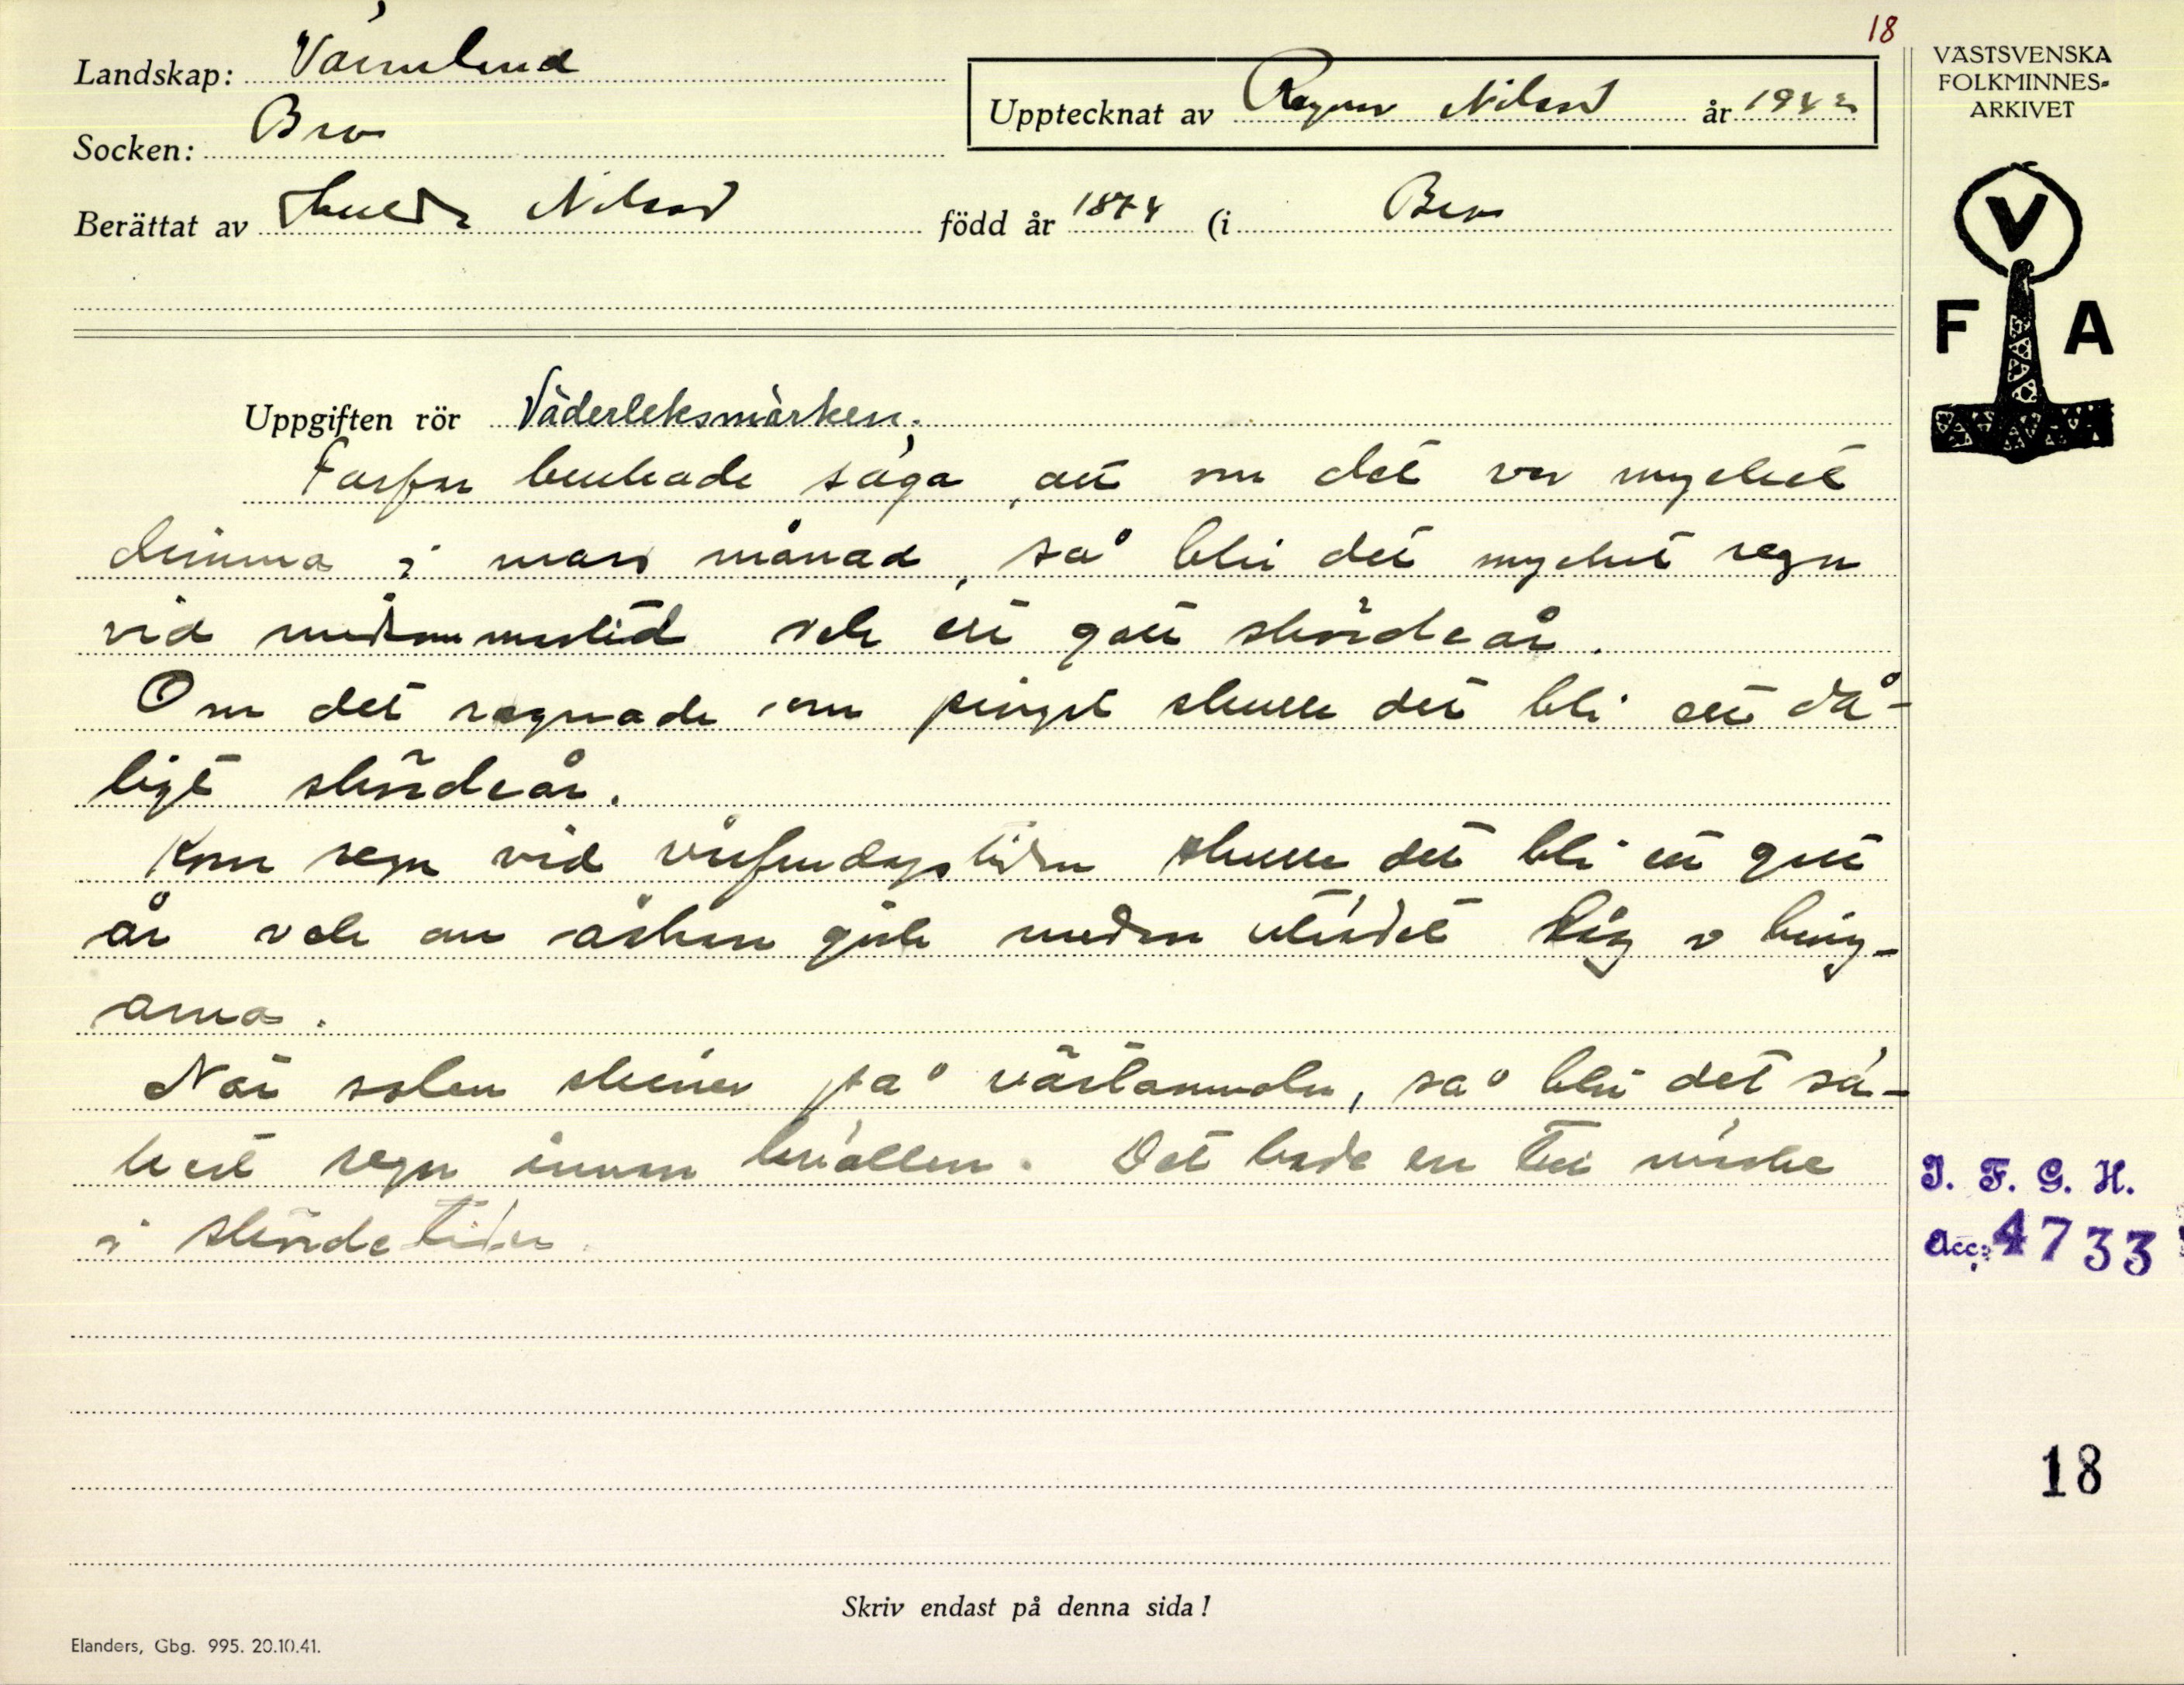 18
Landskap: Värmland
Upptecknat av Ragnar Nilsson år 1942
Socken: Bro
Berättat av Nilsson född år 1874 (i Bro
VÄSTSVENSKA
FOLKMINNES-
ARKIVET
V
F A
Uppgiften rör Väderleksmärken.
Farfar brukade säga, att om det var mycket
dimma i mars månad, så blir det mycket regn
vid midsommartid och ett gott skördeår.
Om det regnade om pingst skulle det bli ett då-
ligt skördeår.
Kom regn vid vårfrudagstiden skulle det bli ett gott
år och om åskan gick medan låg
arna.
När solen skiner på västanmoln, så blir det sä-
kert regn innan kvällen. Det
i skördetiden.
I. F. G. H.
Acc: 4733
18
Skriv endast på denna sida!
Elanders, Gbg. 995. 20.10.41.